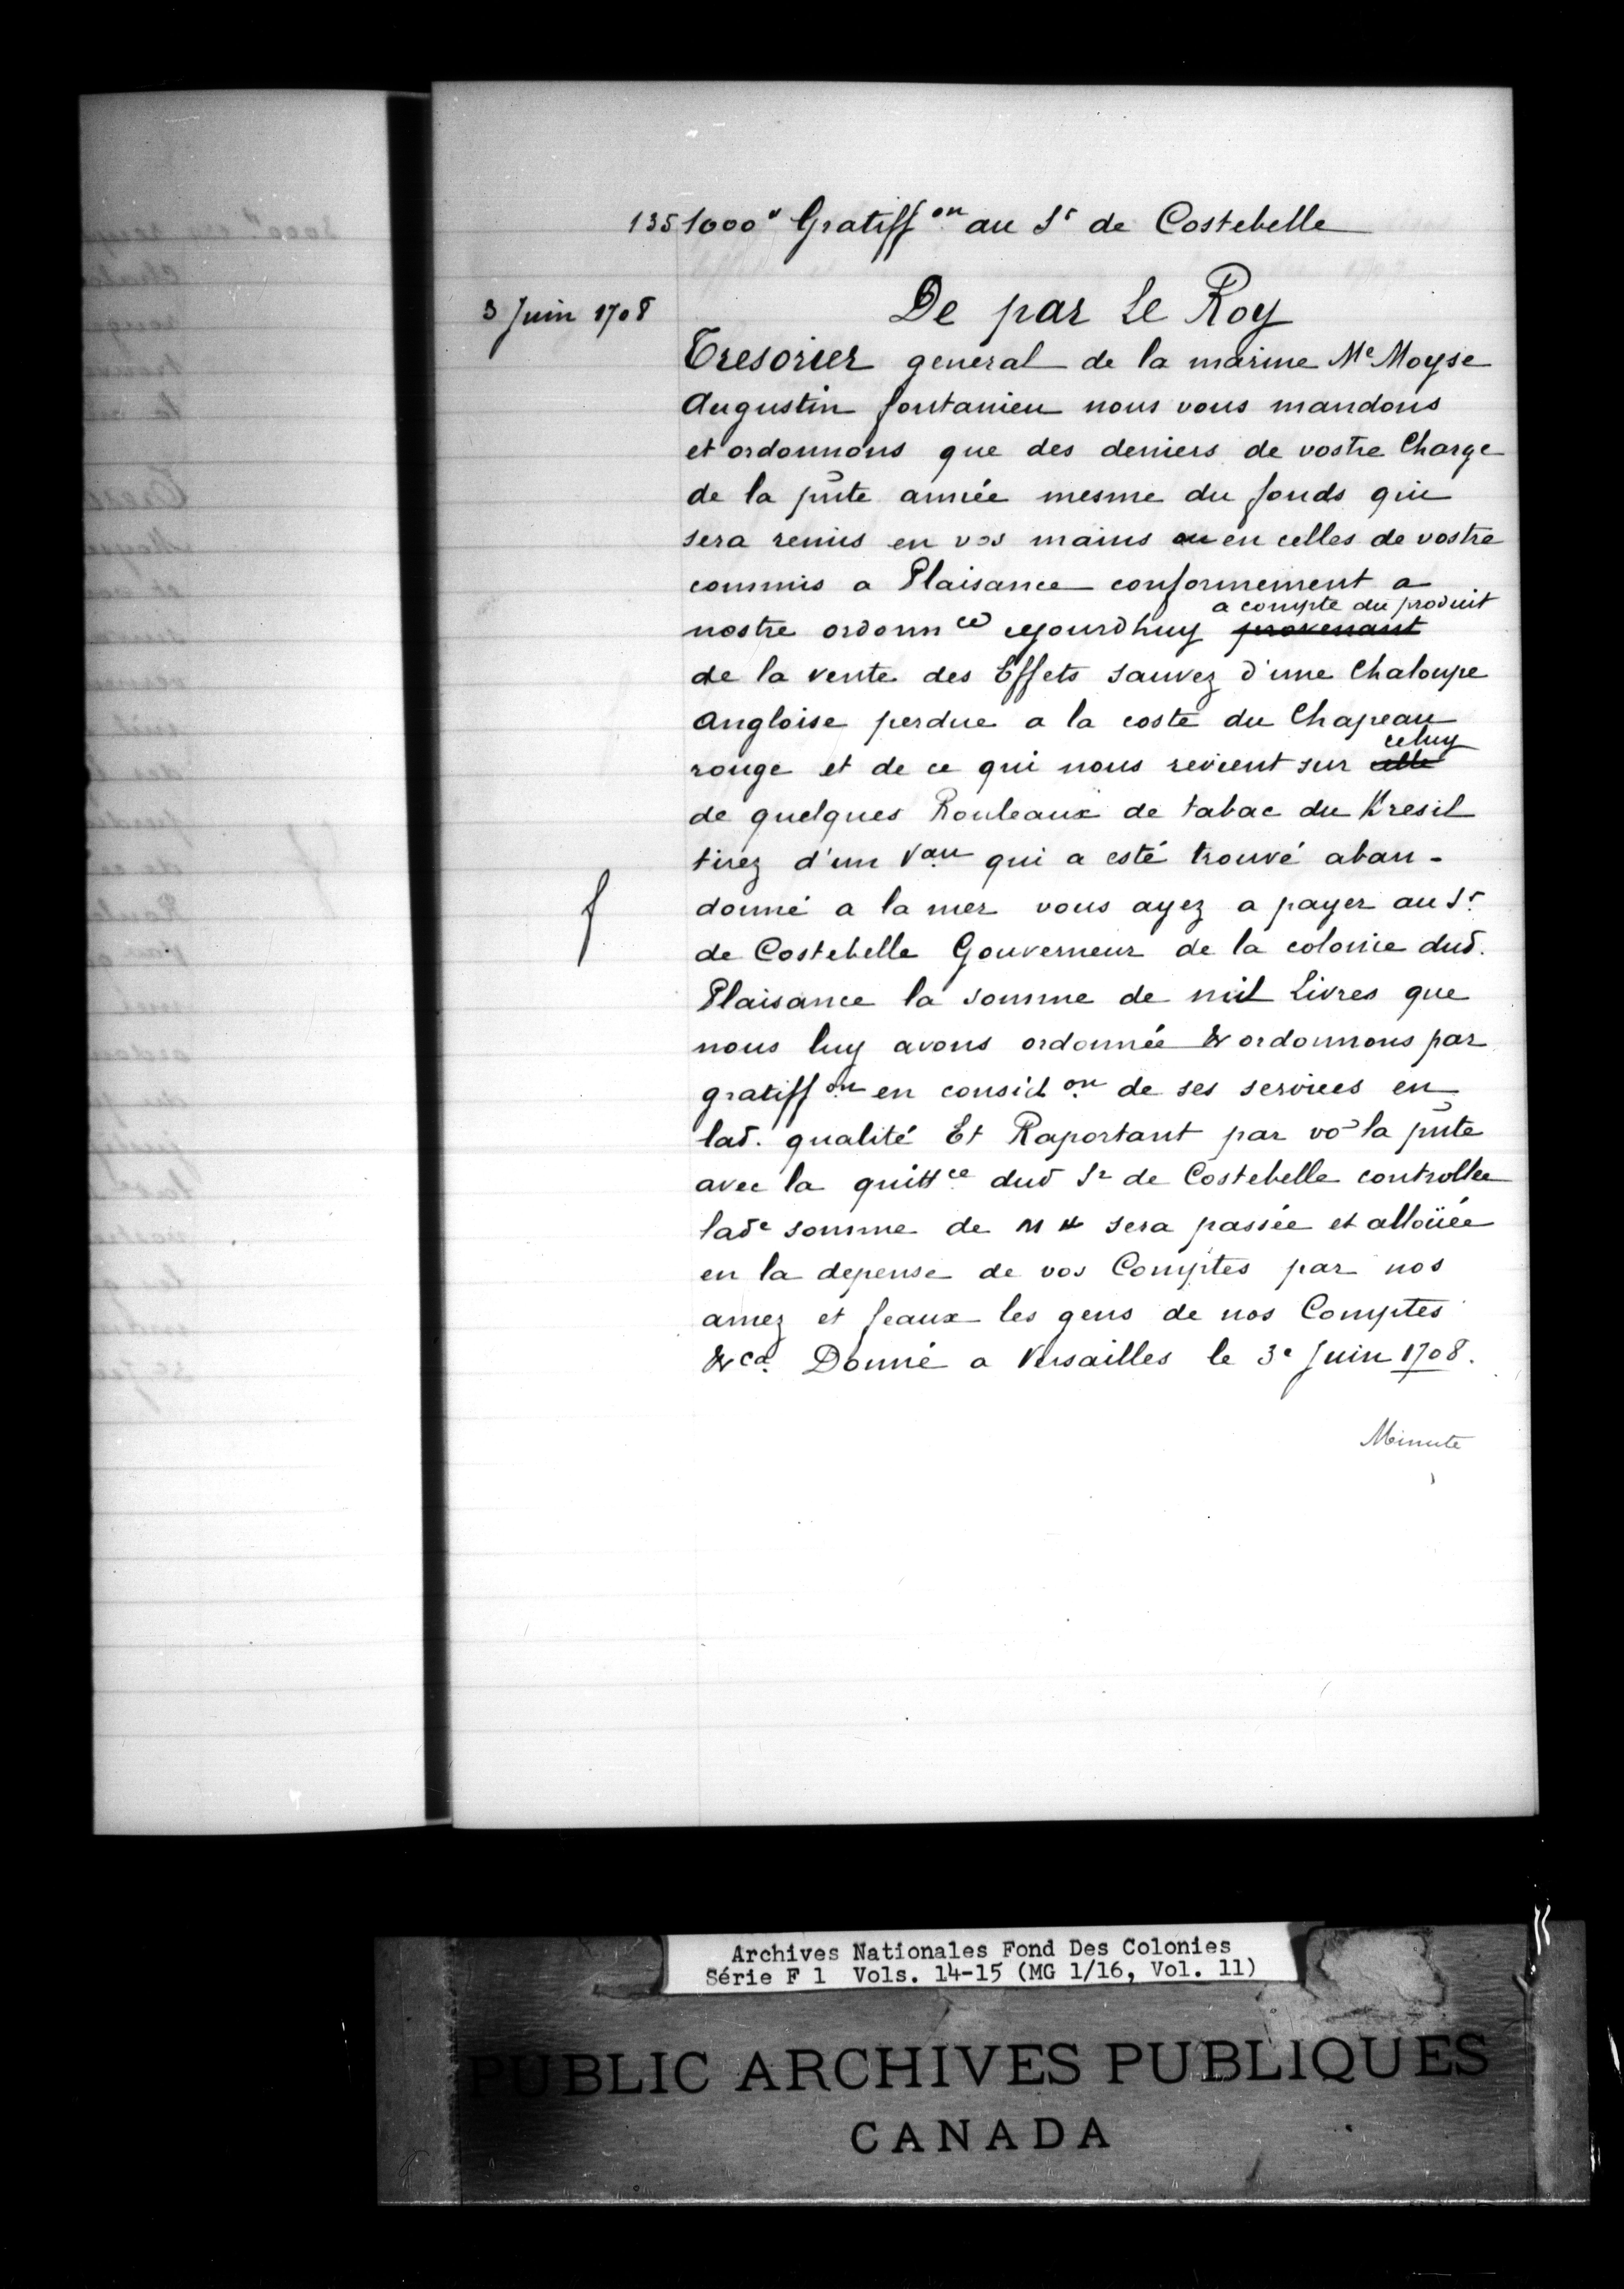 135 1000# Gratiff.on au Sr de Costebelle
3 Juin 1708
De par Le Roy
Tresorier general de la marine Me Moyse
Augustin fontanieu nous vous mandons
et ordonnons que des deniers de vostre Charge
de la pñte année mesme du fonds qui
sera remis en vos mains ou en celles de vostre
commis a Plaisance conformement a
a compte du produit
nostre ordonnce cejourdhuy provenant
de la vente des Effets sauvez d'une Chaloupe
Angloise perdue a la coste du Chapeau
celuy
rouge et de ce qui nous revient sur celle
de quelques Rouleaux de tabac du Bresil
tirez d'un Vau qui a esté trouvé aban-
donné a la mer vous ayez a payer au Sr
de Costebelle Gouverneur de la colonie dud.
Plaisance la somme de mil Livres que
nous luy avons ordonnée & ordonnons par
gratiff.on en considon de ses services en
lad. qualité Et Raportant par vō la pñte
avec la quittce dud Sr de Costebelle controllée
lade somme de M # sera passée et alloüée
en la depense de vos Comptes par nos
amez et feaux les gens de nos Comptes
&ca. Donné a Versailles le 3e Juin 1708.
Minute
Archives Nationales Fond Des Colonies
Série F 1 Vols. 14-15 (MG 1/16, Vol. 11)
PUBLIC ARCHIVES PUBLIQUES
CANADA